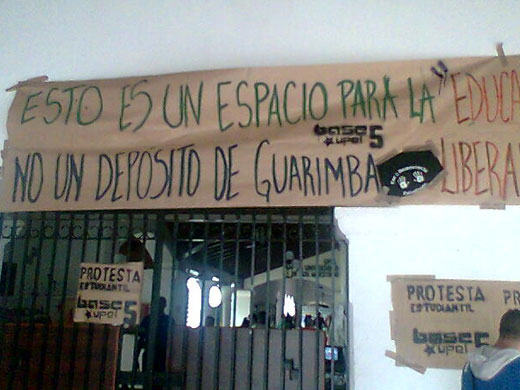 ESTO ES UN ESPACIO PARA LA "EDUCA
base 5
upel
NO UN DEPOSITO DE GUARIMBA LIBERA
PROTESTA
ESTUDIANTIL
base 5
upel
PROTESTA P
ESTUDIANTIL
base 5
upel